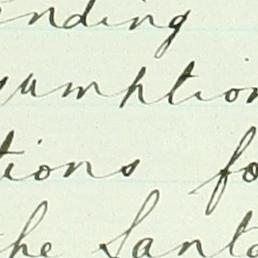 nding
umption
tions fo
the Santa